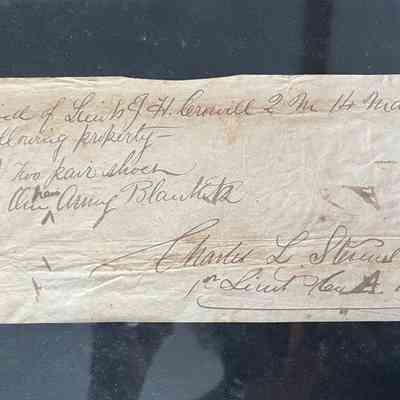 of Lieut J. H. Crowell 2 M 14 Ma
llowing property—
two pair shoes
One new Army Blankets
Charles L Stevens
1st Lieut